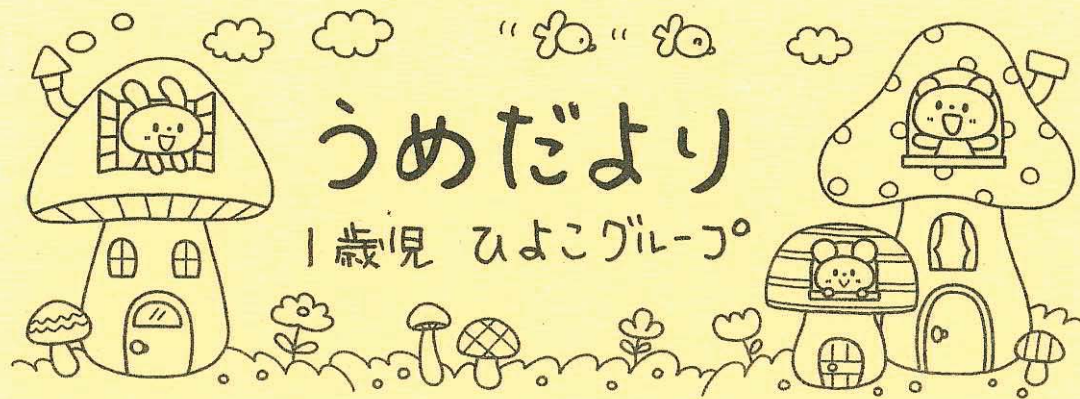 うめだより
1歳児 ひよこグループ